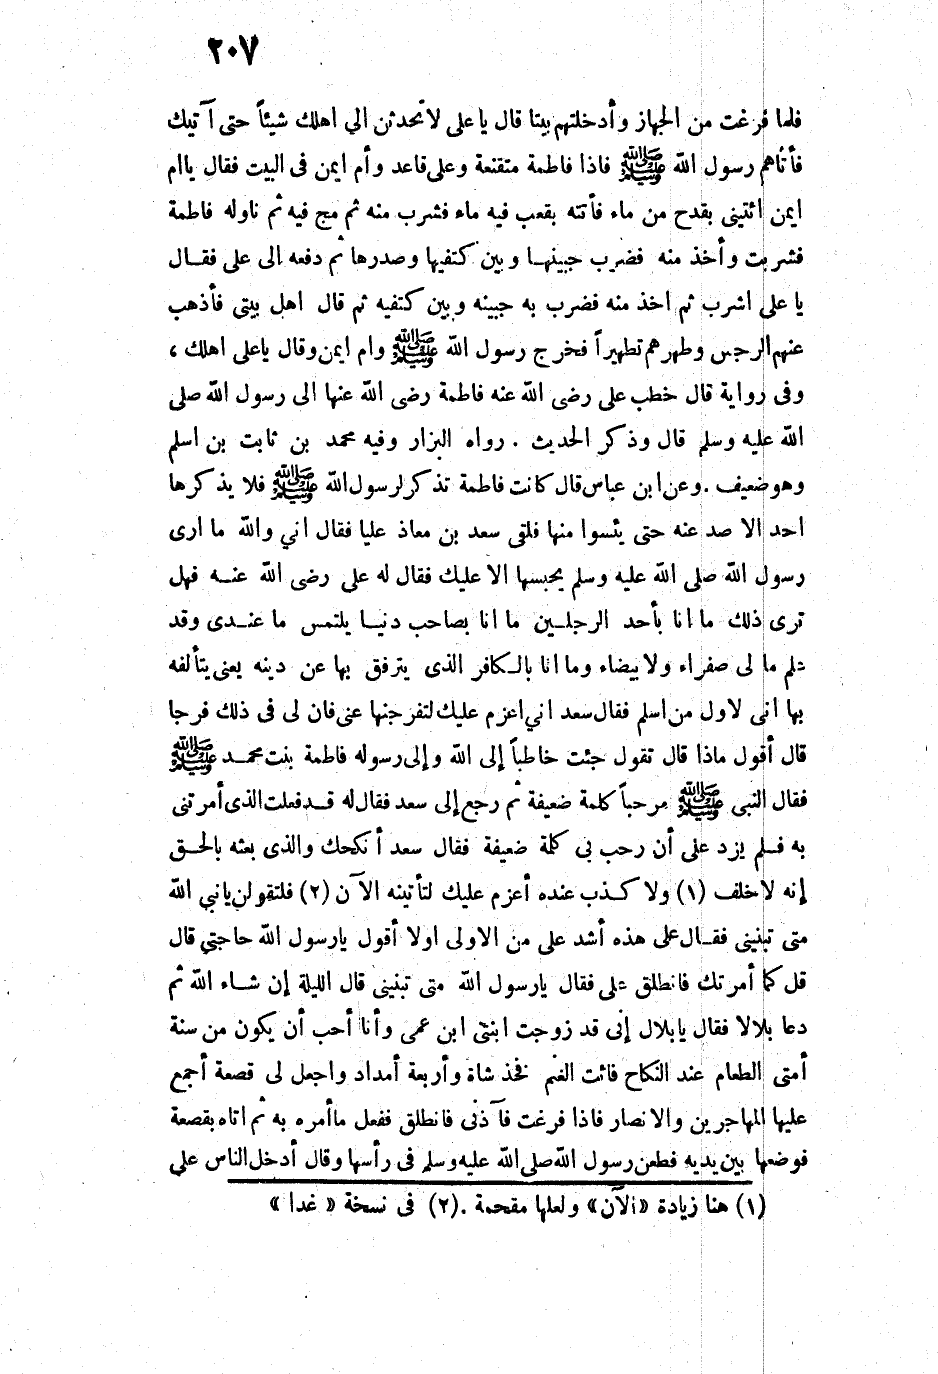 ٢٠٧
فلما فرغت من الجهاز وأدخلتهم بيتا قال يا على لا تحدثن الي اهلك شيئاً حتى آ تيك
فأتاهم رسول الله ﷺ فاذا فاطمة متقنعة وعلى قاعد وأم ايمن فى البيت فقال ياام
ايمن ائتينى بقدح من ماء فأتته بقعب فيه ماء فشرب منه ثم مج فيه ثم ناوله فاطمة
فشربت وأخذ منه فضرب جبينهـا وبين كتفيها وصدرها ثم دفعه الى على فقـال
يا على اشرب ثم اخذ منه فضرب به جبينه وبين كتفيه ثم قال اهل بيتى فأذهب
عنهم الرجس وطهرهم تطهيراً فخرج رسول الله ﷺ وام ايمن وقال ياعلى اهلك ،
وفى رواية قال خطب على رضى الله عنه فاطمة رضى الله عنها الى رسول الله صلى
الله عليه وسلم قال وذكر الحديث . رواه البزار وفيه محمد بن ثابت بن اسلم
وهو ضعيف . وعن ابن عباس قال كانت فاطمة تذكر لرسول الله ﷺ فلا يذكرها
احد الا صد عنه حتى يئسوا منها فلقى سعد بن معاذ عليا فقال اني والله ما ارى
رسول الله صلى الله عليه وسلم يحبسها الا عليك فقال له على رضى الله عنـه فهل
ترى ذلك ما انا بأحد الرجلـين ما انا بصاحب دنيـا يلتمس ما عنـدى وقد
علم ما لى صفراء ولا بيضاء وما انا بالـكافر الذى يترفق بها عن دينه يعنى يتألفه
بها انى لاول من اسلم فقال سعد اني اعزم عليك لتفرجنها عنى فان لى فى ذلك فرجا
قال أقول ماذا قال تقول جئت خاطباً إلى الله وإلى رسوله فاطمة بنت محمـد ﷺ
فقال النبى ﷺ مرحباً كلمة ضعيفة ثم رجع إلى سعد فقال له قـد فعلت الذى أمرتنى
به فـلم يزد على أن رحب بى كلمة ضعيفة فقال سعد أنكحك والذى بعثه بالحـق
إنه لا خلف (١) ولا كـذب عنده أعزم عليك لتأتينه الآن (٢) فلتقولن يا نبي الله
متى تبنينى فقـال على هذه أشد على من الاولى اولا أقول يارسول الله حاجتي قال
قل كما أمرتك فانطلق على فقال يارسول الله متى تبنينى قال الليلة إن شـاء الله ثم
دعا بلالا فقال يابلال إنى قد زوجت ابنتى ابن عمى وأنا أحب أن يكون من سنة
أمتى الطعام عند النكاح فائت الغنم فخذ شاة وأربعة أمداد واجعل لى قصعة أجمع
عليها المهاجرين والانصار فاذا فرغت فآذنى فانطلق ففعل ماأمره به ثم اتاه بقصعة
فوضعها بين يديه فطعن رسول الله صلى الله عليه وسلم فى رأسها وقال أدخل الناس على
(١) هنا زيادة «الآن» ولعلها مقحمة .(٢) فى نسخة « غدا »